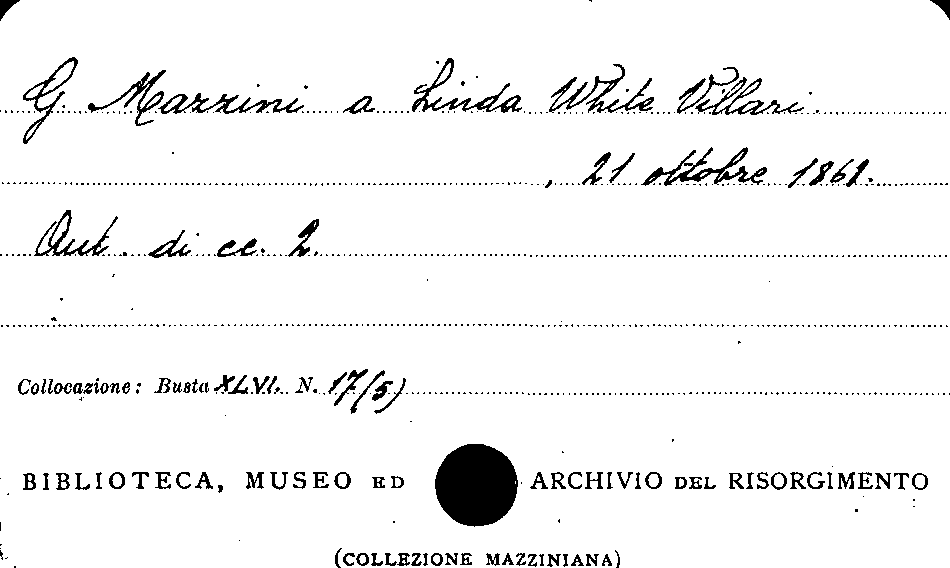 G. Mazzini a Linda White Villari.
, 21 ottobre 1861.
Aut. di cc. 2.
Collocazione: Busta XLVI. N. 17(5)
BIBLIOTECA, MUSEO ED ARCHIVIO DEL RISORGIMENTO
(COLLEZIONE MAZZINIANA)